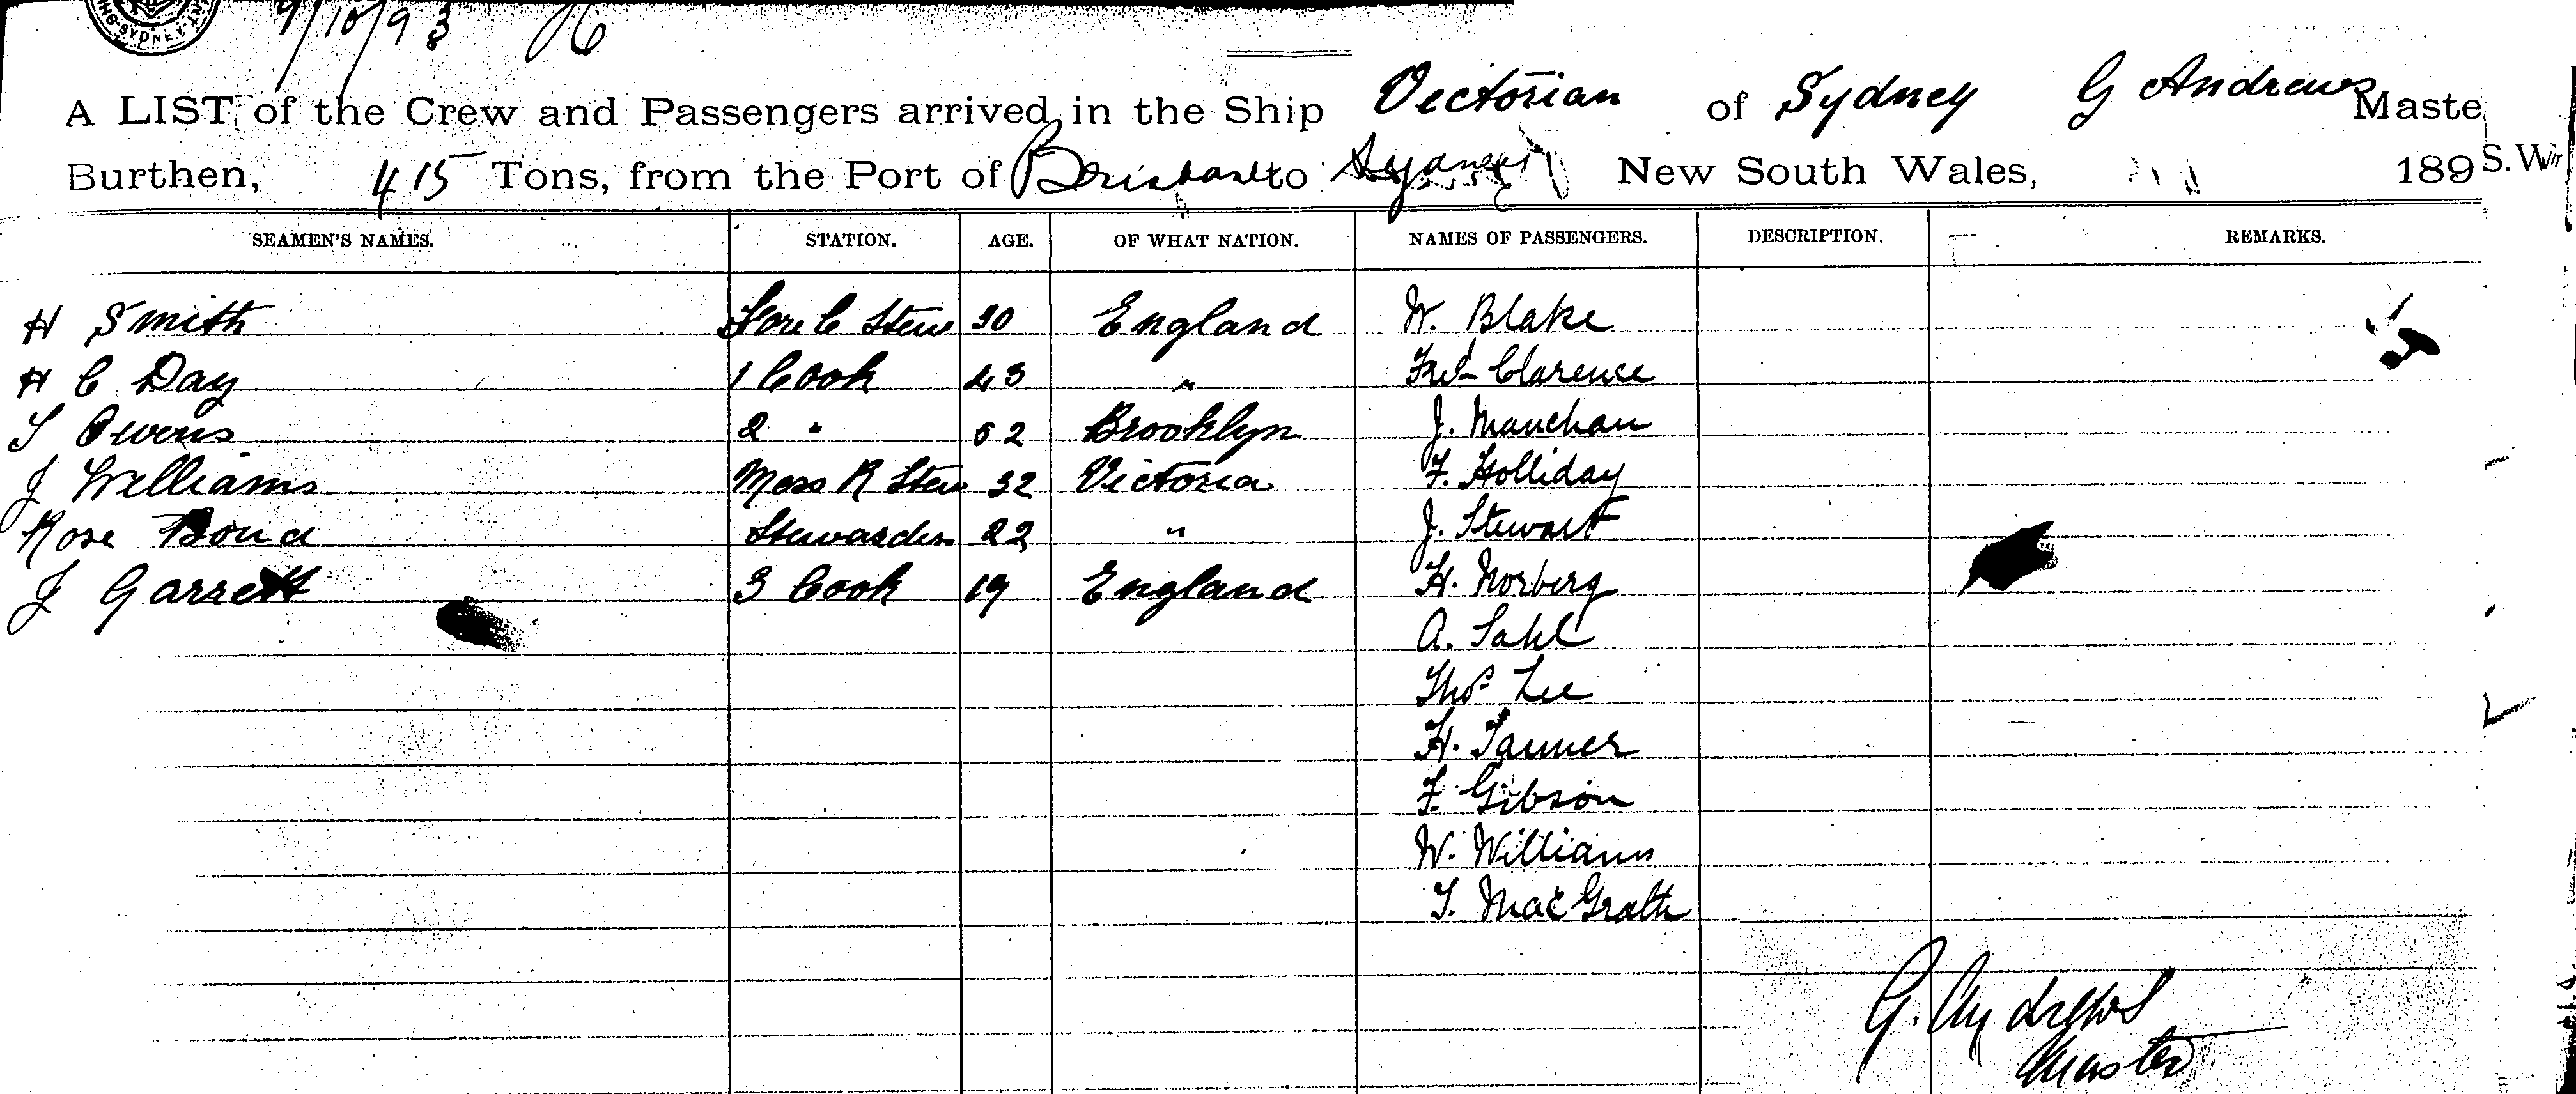 SYDNEY
9/10/93
A LIST, of the Crew and Passengers arrived in the Ship Victorian of Sydney G Andrews Maste
Burthen, 415 Tons, from the Port of Brisbane to Sydney New South Wales, 189 S.W
SEAMEN'S NAMES. STATION. AGE. OF WHAT NATION. NAMES OF PASSENGERS. DESCRIPTION. REMARKS.
H Smith Fore C Stew 30 England W. Blake
H C Day 1 Cook 43 " Fred Clarence
S Owens 2 " 52 Brooklyn J. Manchan
J Williams Mess R Stew 32 Victoria F. Holliday
Rose Bond Stewardess 22 " J. Stewart
J Garrett 3 Cook 19 England H. Norberg
A. Sahl
Thos Lee
H. Tanner
F. Gibson
W. Williams
T. MacGrath
G. Andrews
Master